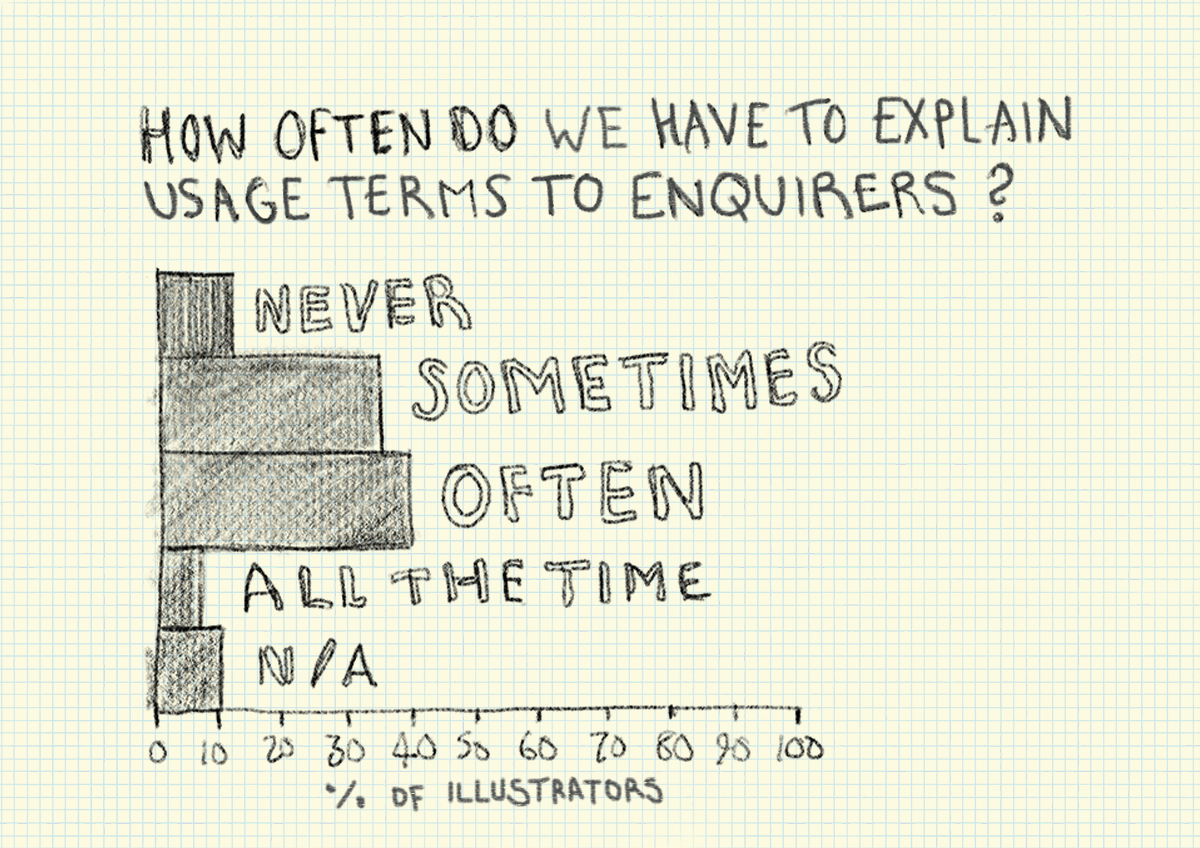 HOW OFTEN DO WE HAVE TO EXPLAIN
USAGE TERMS TO ENQUIRERS ?
NEVER
SOMETIMES
OFTEN
ALL THE TIME
N/A
0 10 20 30 40 50 60 70 80 90 100
% OF ILLUSTRATORS